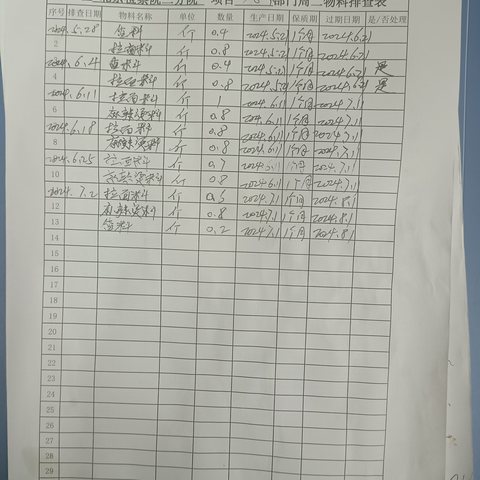 部门周二物料排查表
序号 排查日期 物料名称 单位 数量 生产日期 保质期 过期日期 是/否处理
2024.5.28 斤 0.4 2024.5.21 1个月 2024.6.21
2 拉面料 斤 0.8 2024.5.21 1个月 2024.6.21
2024.6.4 斤 0.4 2024.5.21 1个月 2024.6.21 是
拉面料 斤 0.8 2024.5.21 1个月 2024.6.21 是
2024.6.11 拉面料 斤 1 2024.6.11 1个月 2024.7.11
6 麻辣烫料 斤 0.8 2024.6.11 1个月 2024.7.11
2024.6.18 拉面料 斤 0.8 2024.6.11 1个月 2024.7.11
8 麻辣烫料 斤 0.8 2024.6.11 1个月 2024.7.11
2024.6.25 拉面料 斤 0.7 2024.6.11 1个月 2024.7.11
10 麻辣烫料 斤 0.8 2024.6.11 1个月 2024.7.11
2024.7.2 拉面料 斤 0.5 2024.7.1 1个月 2024.8.1
12 麻辣烫料 斤 0.8 2024.7.1 1个月 2024.8.1
13 斤 0.2 2024.7.1 1个月 2024.8.1
14
15
16
17
18
19
20
21
22
23
24
25
26
27
28
29